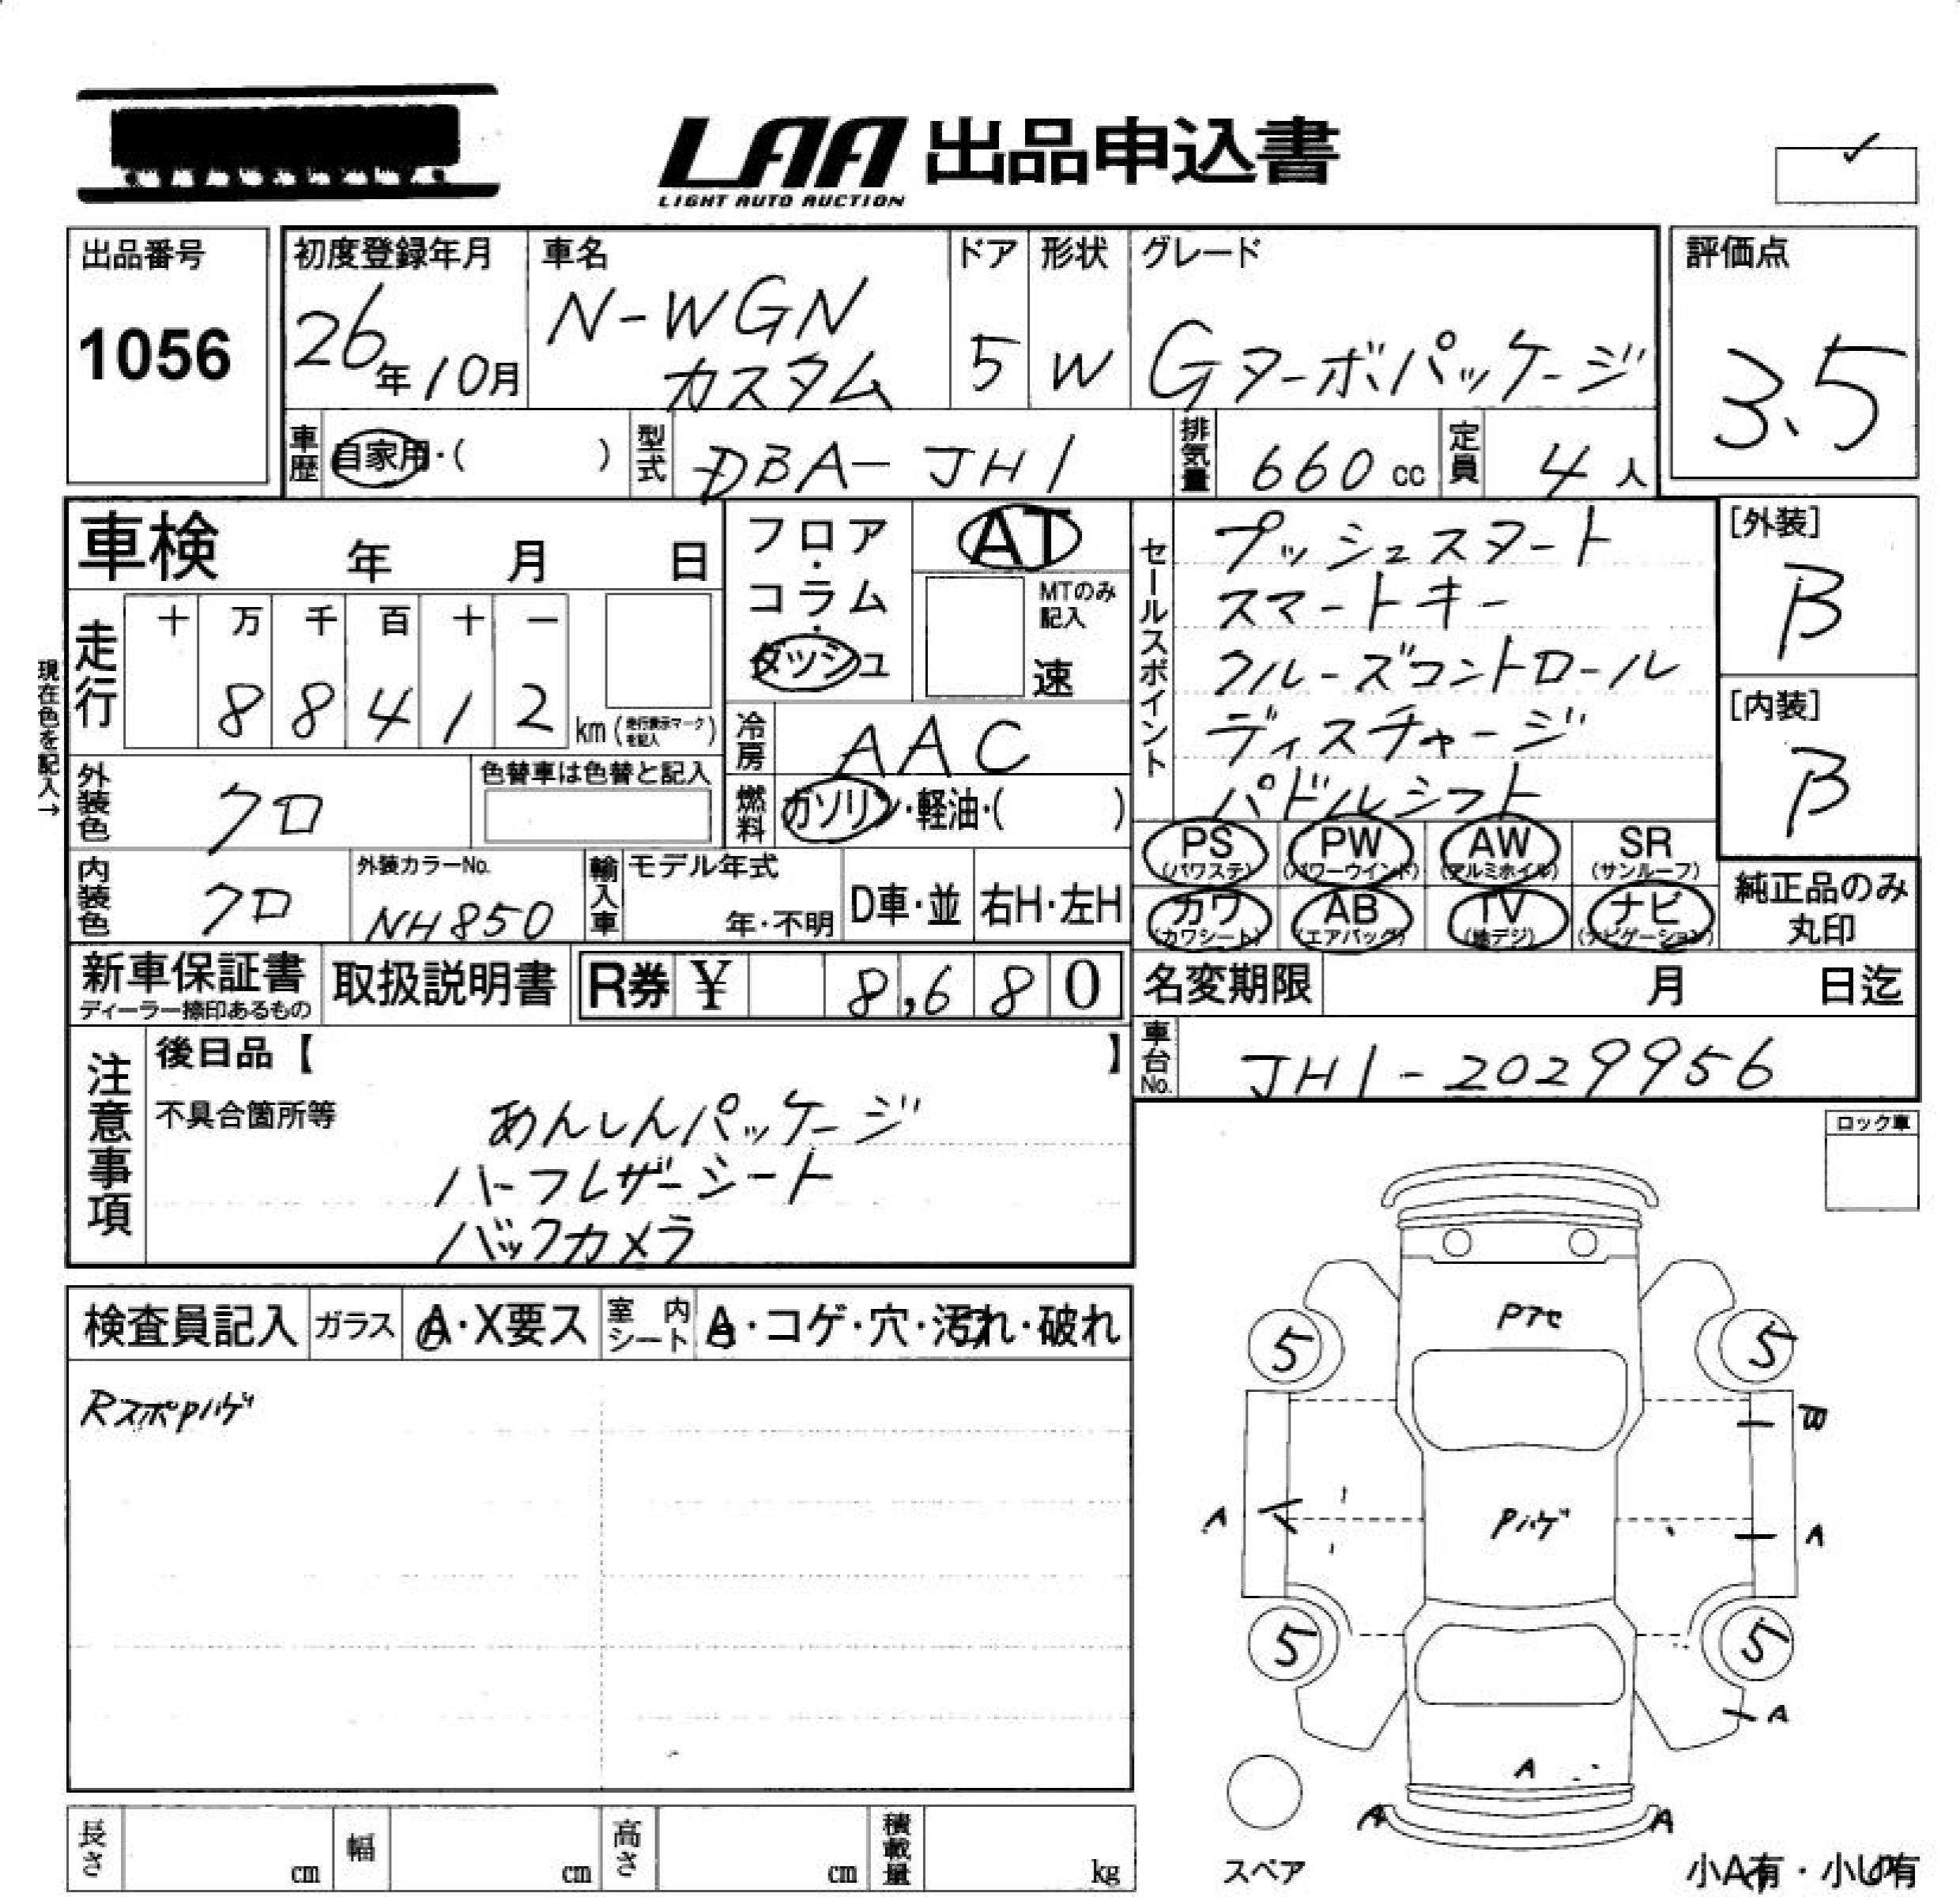 LAA 出品申込書
LIGHT AUTO AUCTION
出品番号
1056
初度登録年月
26年10月
車名
N-WGN
カスタム
ドア
5
形状
W
グレード
Gターボパッケージ
評価点
3.5
車歴
自家用・( )
型式
DBA-JH1
排気量
660 cc
定員
4人
車検 年 月 日
走行
十 万 千 百 十 一
8 8 4 1 2 km (走行表示マークを記入)
現在色を記入→
フロア・コラム・ダッシュ
AT
MTのみ記入
速
冷房
AAC
燃料
ガソリン・軽油・( )
セールスポイント
プッシュスタート
スマートキー
クルーズコントロール
ディスチャージ
パドルシフト
[外装]
B
[内装]
B
外装色
クロ
色替車は色替と記入
内装色
クロ
外装カラーNo.
NH850
輸入車
モデル年式
年・不明
D車・並
右H・左H
PS (パワステ)
PW (パワーウインド)
AW (アルミホイル)
SR (サンルーフ)
カワ (カワシート)
AB (エアバッグ)
TV (地デジ)
ナビ (ナビゲーション)
純正品のみ
丸印
新車保証書
ディーラー捺印あるもの
取扱説明書
R券 ¥ 8,680
名変期限 月 日迄
車台No.
JH1-2029956
注意事項
後日品【 】
不具合箇所等
あんしんパッケージ
ハーフレザーシート
バックカメラ
ロック車
検査員記入
ガラス
A・X要ス
室内シート
A・コゲ・穴・汚れ・破れ
RスポPハゲ
Pアセ
5 5
B
A
Pハゲ
A
5 5
A
A
A A
スペア
小A有・小U有
長さ cm
幅 cm
高さ cm
積載量 kg